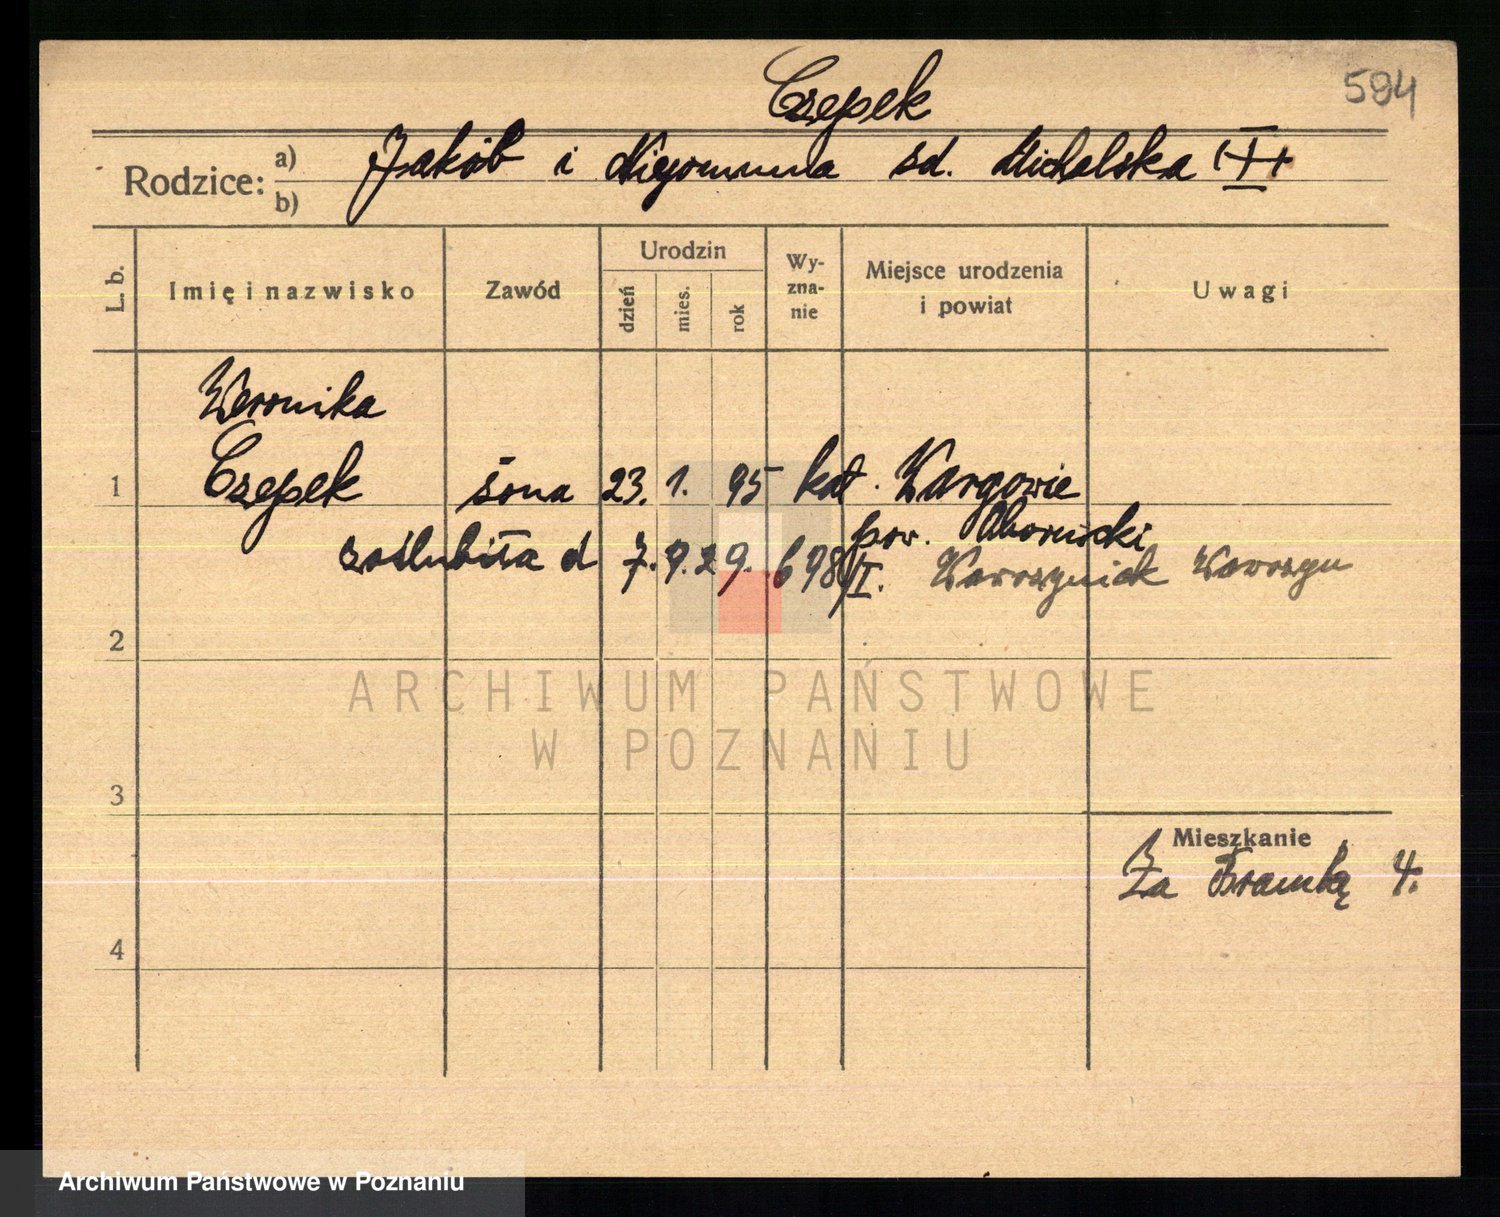 Czepek
594
Rodzice: a) b)
Jakób i Niepomuna zd. Michalska (+)
L. b.
Imię i nazwisko
Zawód
Urodzin
dzień
mies.
rok
Wy-
zna-
nie
Miejsce urodzenia
i powiat
Uwagi
Weronika
1 Czepek żona 23. 1. 95 kat. Wargowie
pow. Obornicki
zaślubiła d 7. 9. 29. 698/I. Wawrzyniak Wawrzyn
2
ARCHIWUM PAŃSTWOWE
W POZNANIU
3
Mieszkanie
Za Bramką 4.
4
Archiwum Państwowe w Poznaniu